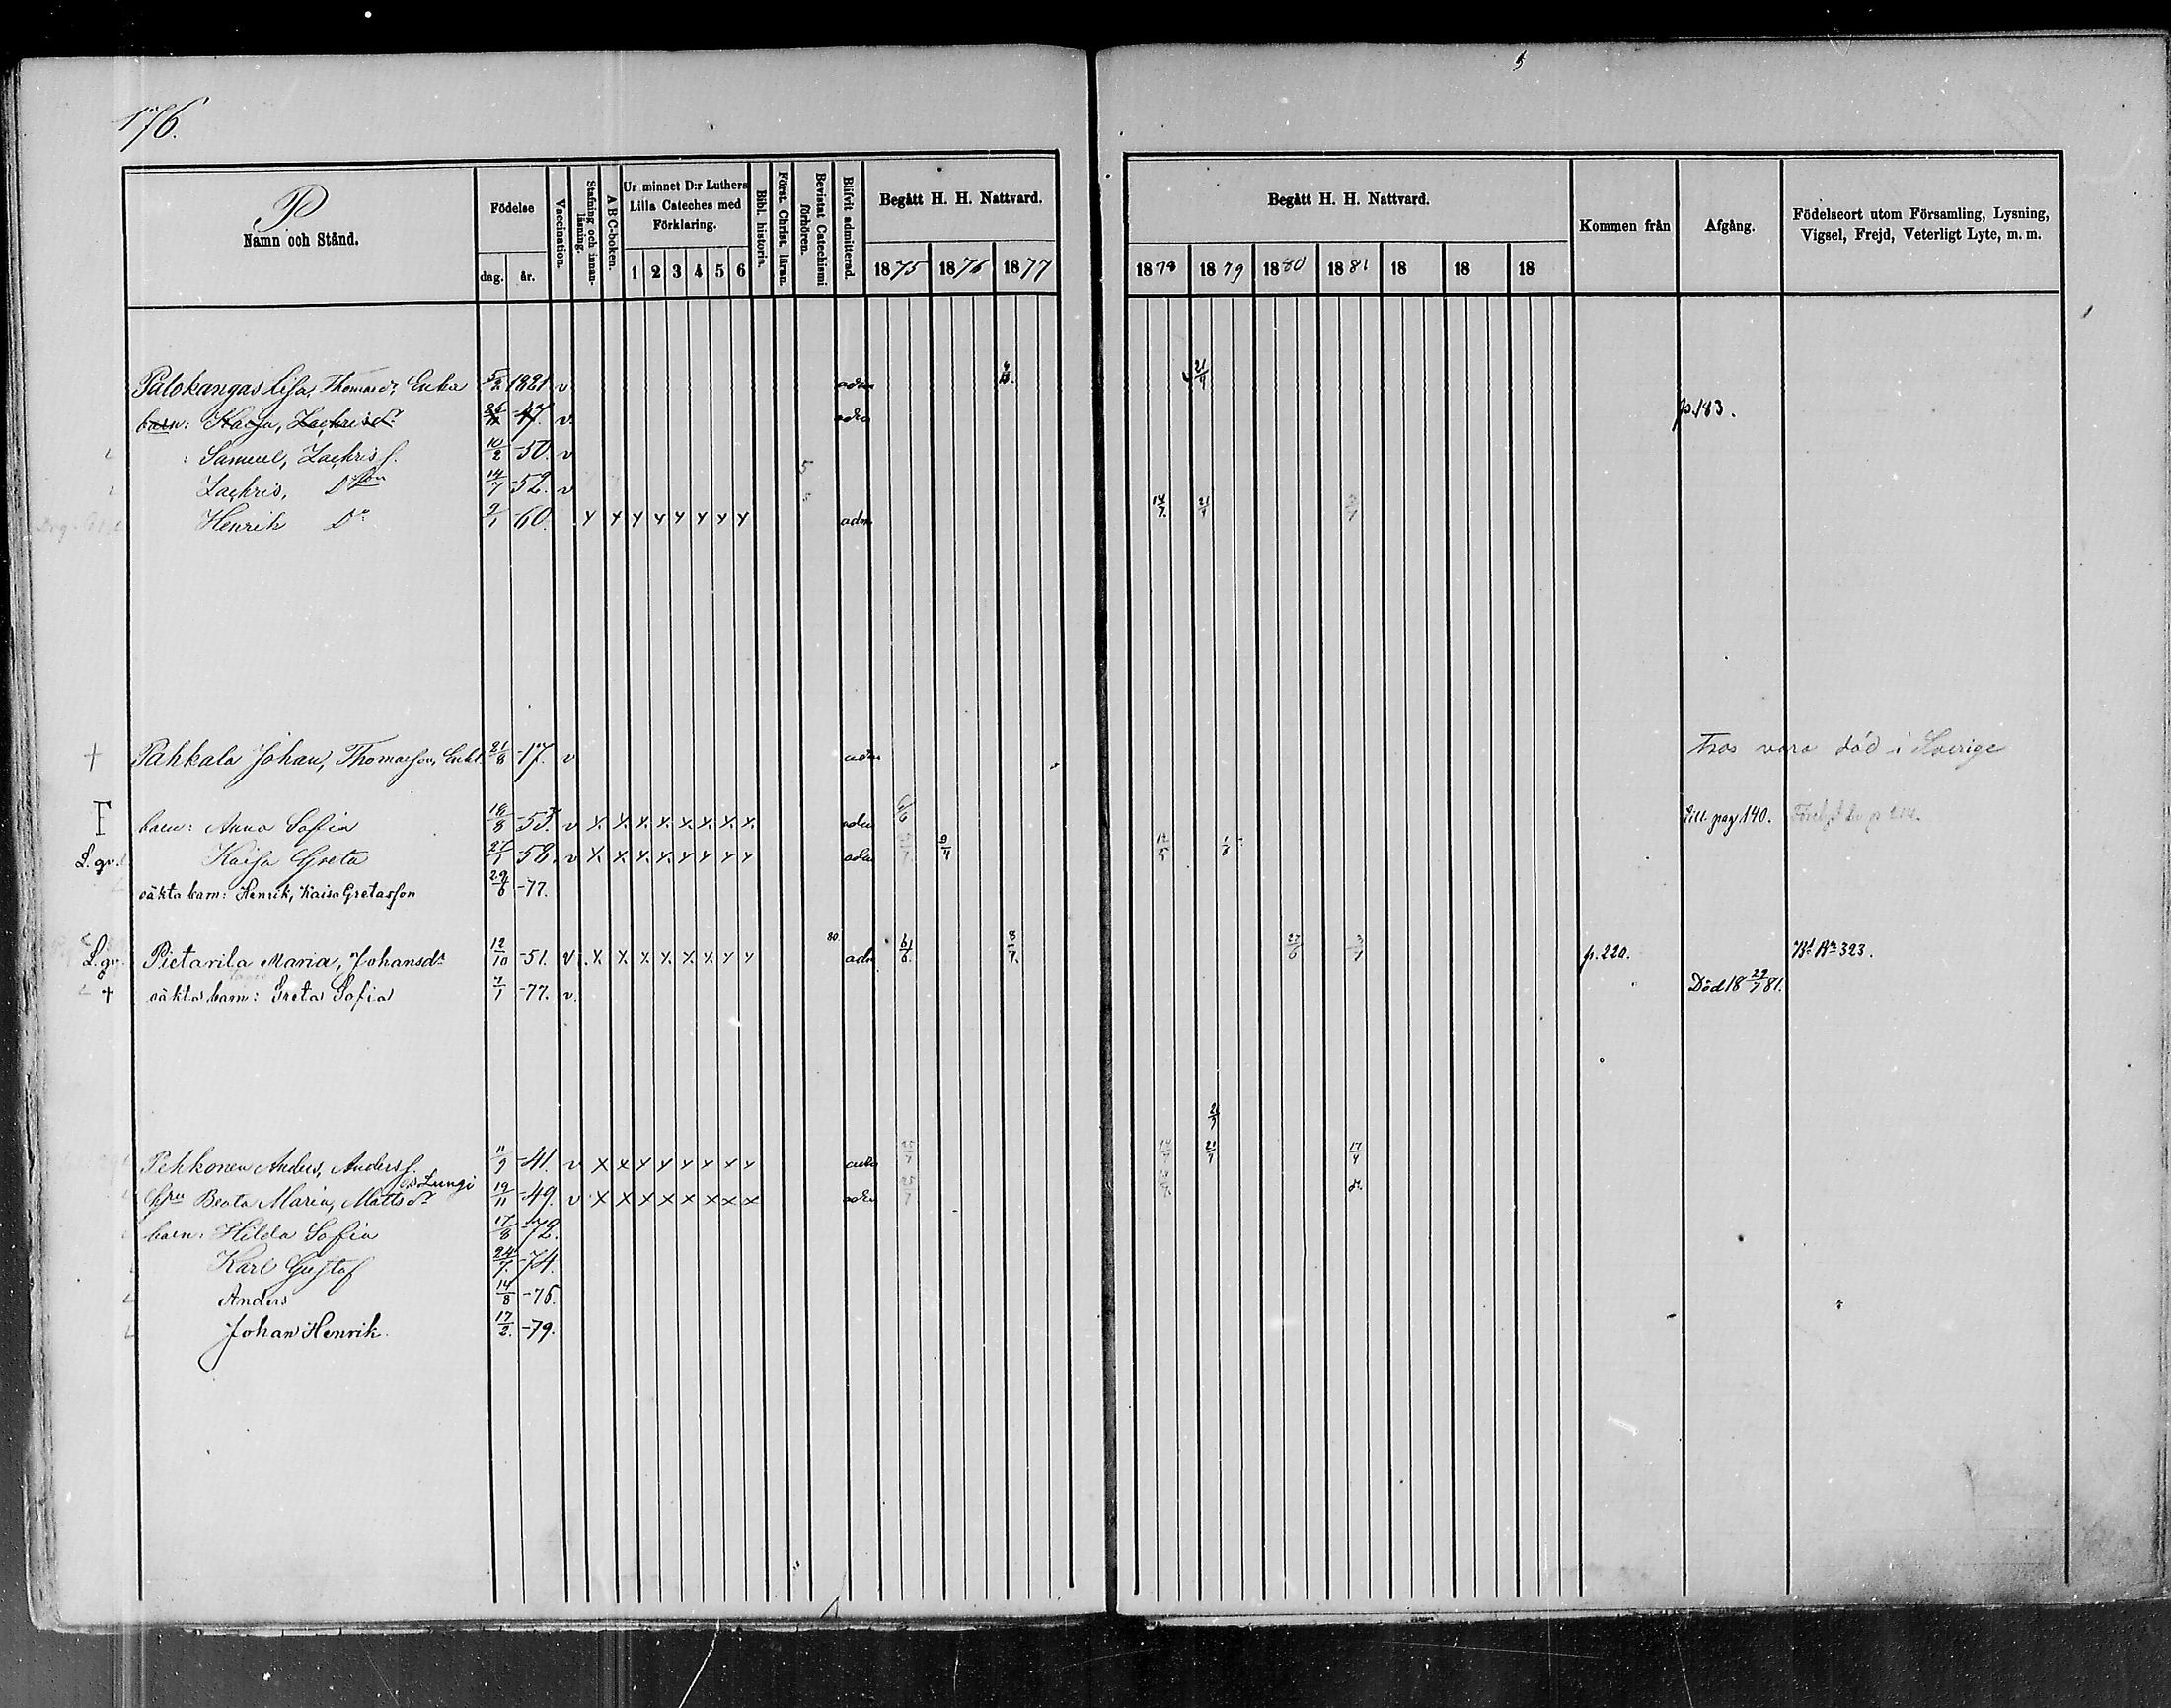 176.
P
Namn och Stånd.
Födelse
dag.
år.
Vaccination.
Stafning och innan-läsning.
A B C-boken.
Ur minnet D:r Luthers
Lilla Cateches med
Förklaring.
1 2 3 4 5 6
Bibl. historia.
Först. Christ. läran.
Bevistat Catechismi förhören.
Blifvit admitterad.
Begått H. H. Nattvard.
1875 1876 1877
Begått H. H. Nattvard.
1878 1879 1880 1881 18 18 18
Kommen från
Afgång.
Födelseort utom Församling, Lysning,
Vigsel, Frejd, Veterligt Lyte, m. m.
Palokangas Lisa, Thomasdr, Enka 5/2 1821 v adm 21/4
barn: Kaisa, Zachrisdr -47. v. adm p. 183.
: Samuel, Zachriss. 10/2 -50. v
Zachris, Dº son 14/7 -52. v
Henrik Dº 9/1 -60. x x x x x x x x adm 14/7. 21/4
+ Pahkala Johan, Thomasson, Enkl. 21/8 -17. v adm Tros vara död i Sverige
F barn: Anna Sofia 18/8 -53. v x. x. x. x. x. x. x. x. adm 6/6 till pag. 140.
L. gv. Kaisa Greta 27/1 -58. v x. x. x. x. x x x x adm 9/4 12/5
oäkta barn: Henrik, Kaisa Gretasson 29/6 -77.
L. gv. Pietarila Maria, Johansdr 12/10 -51. v. x. x. x. x. x. x x x 80. adm 6/6. 8/7. 27/6 p. 220. Bd Bn 323.
+ oäkta barn: Greta Sofia 7/1 -77. v. Död 18 29/7 81.
21/7
Pehkonen Anders, Anderss. 11/9 -41. v x x x x x x x x adm 25/7 14/7 21/7 17/4
ell. Lungi
Hru Beata Maria, Mattsdr 19/11 -49. v x x x x x x x x adm 25/7 dº
barn: Hilda Sofia 17/8 -72.
Karl Gustaf 24/7. -74.
Anders 14/8 -76.
Johan Henrik. 17/2. -79.